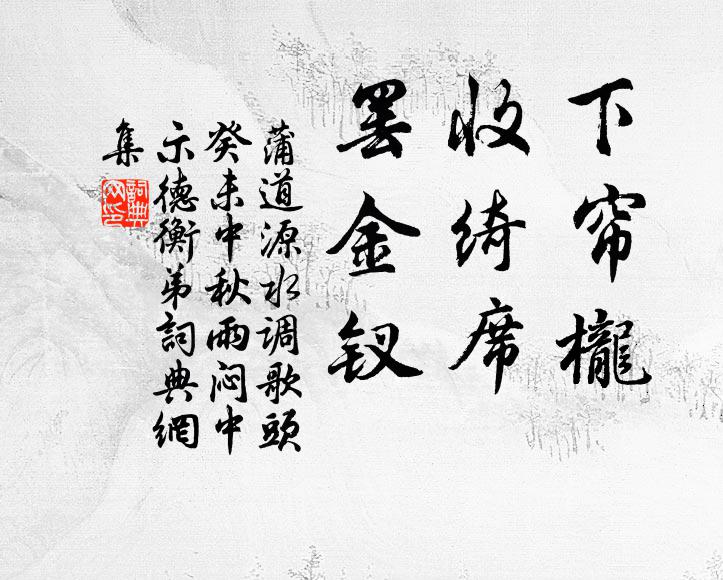 下帘櫳
收绮席
罢金钗
蒲道源水调歌头
癸未中秋雨闷中
示德衡弟詞典網
集
詞典
网印